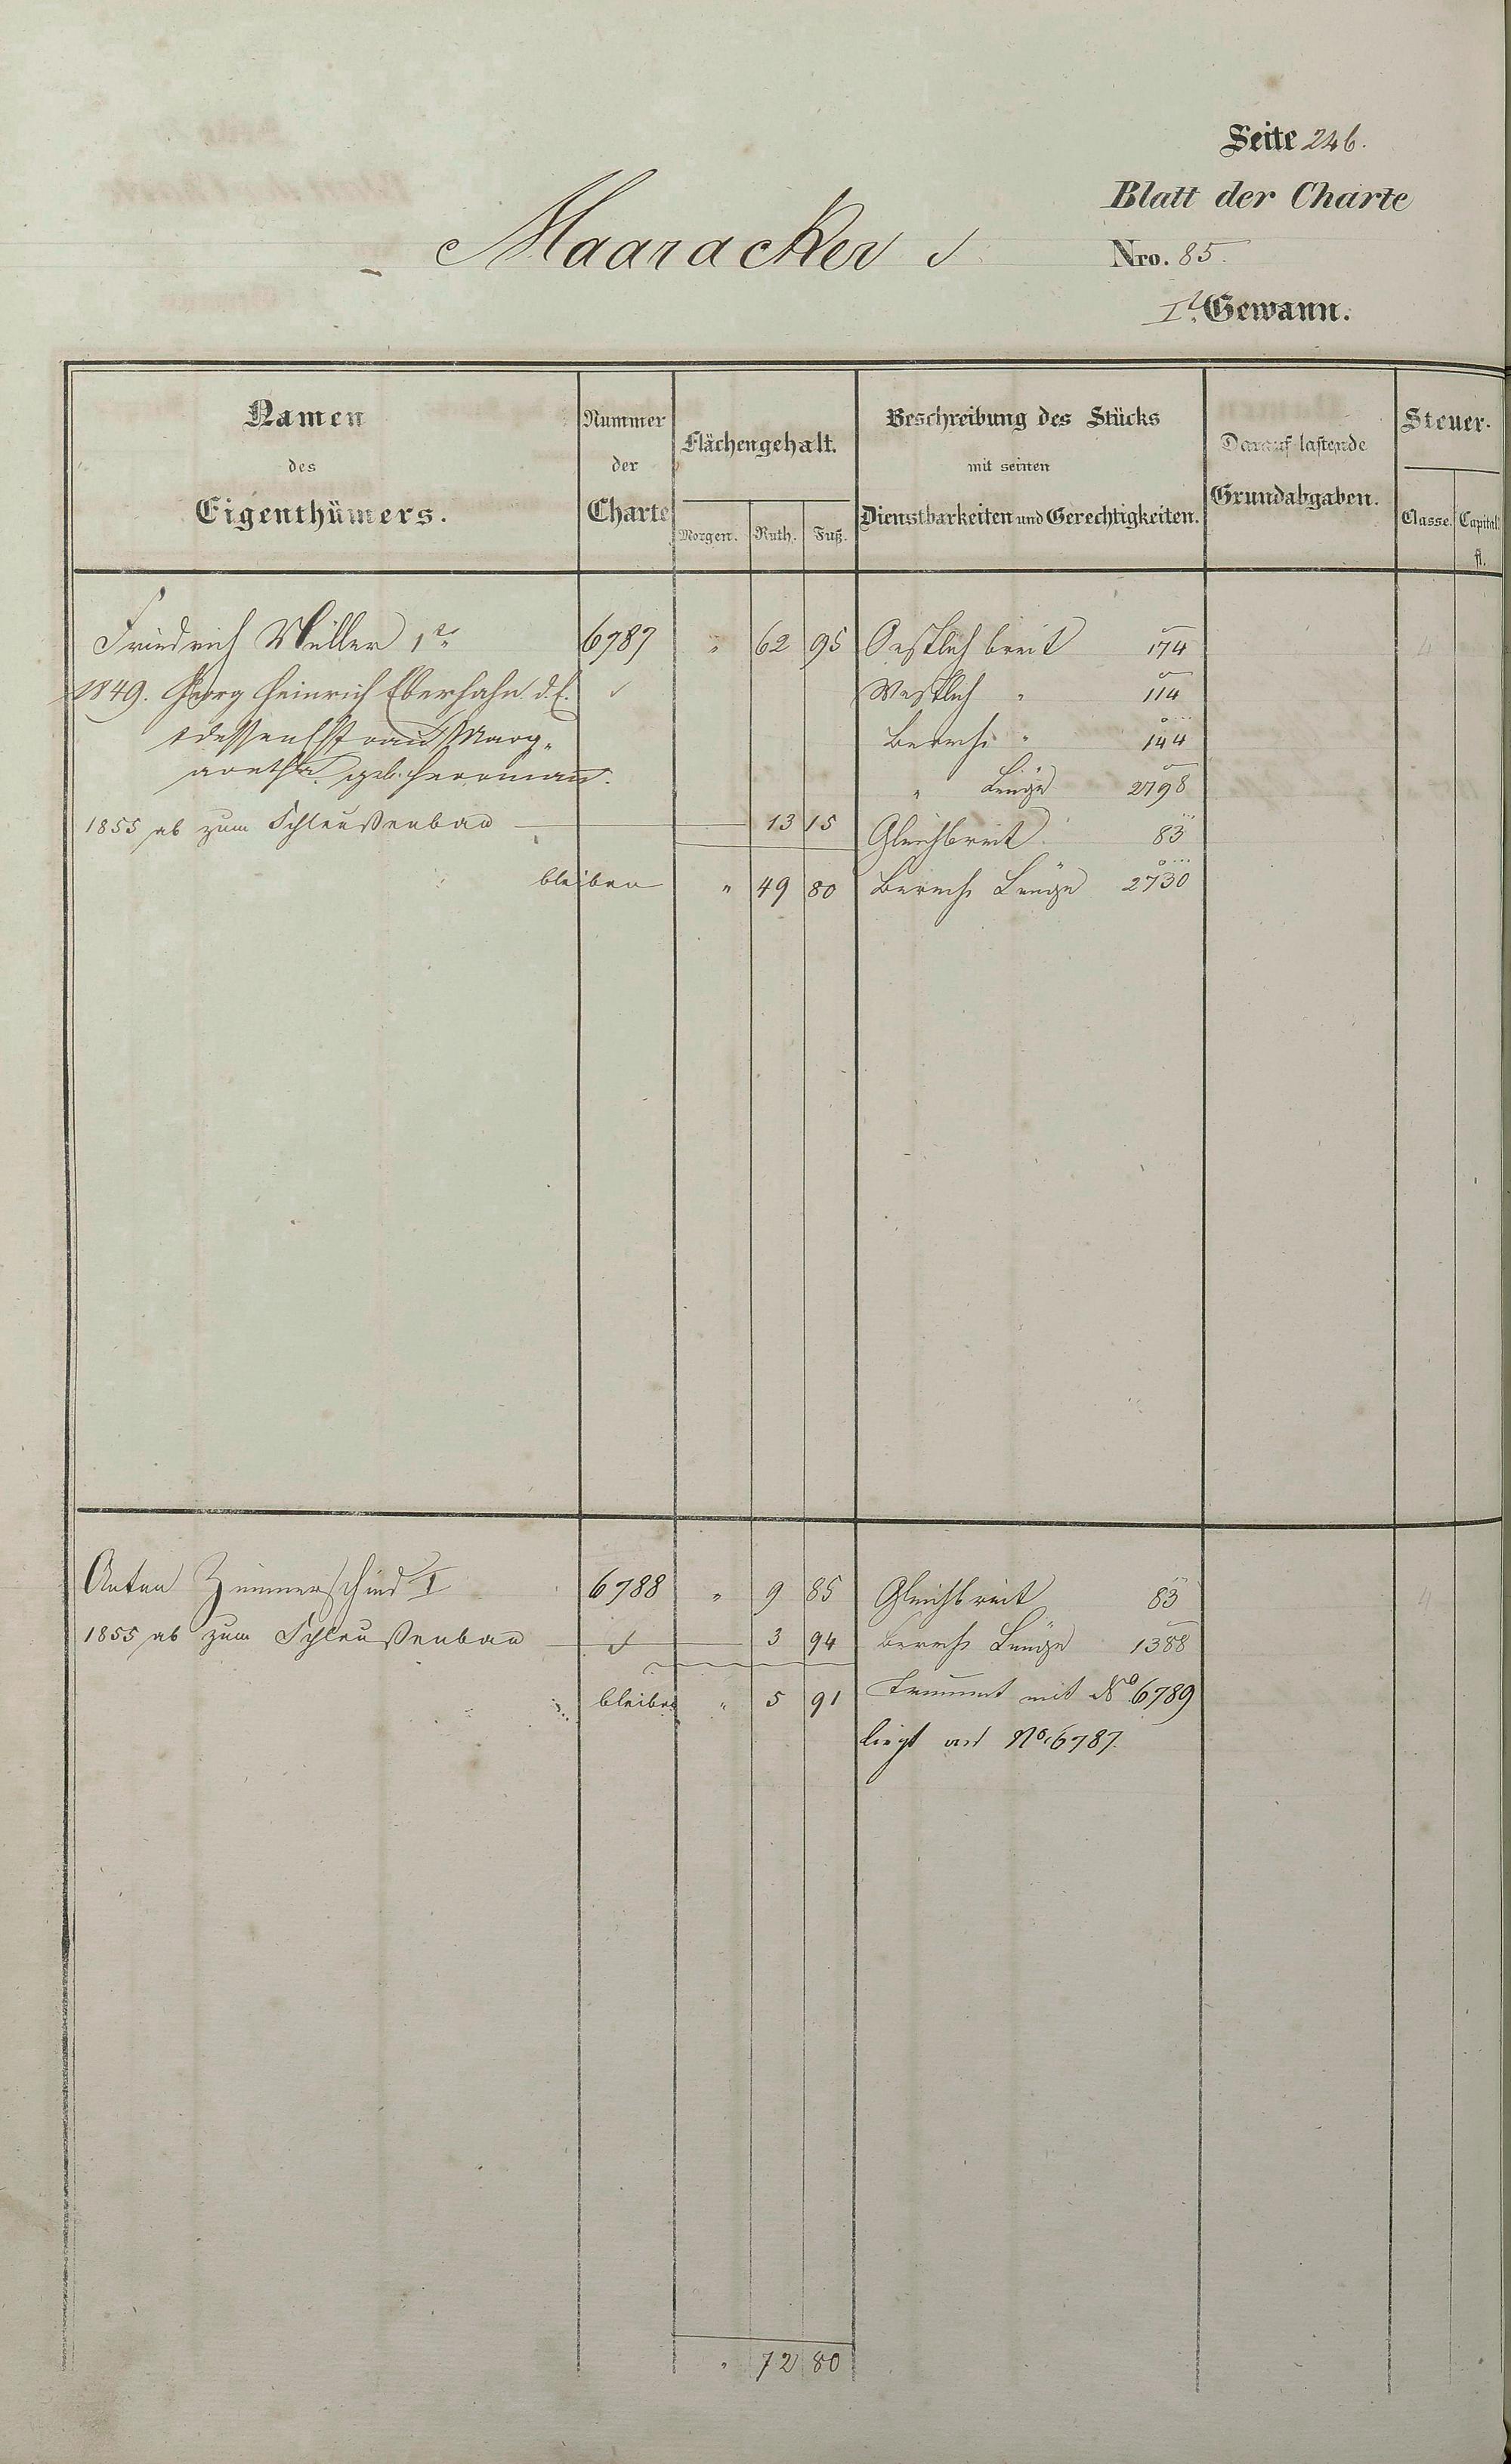 Seite 246.
Blatt der Charte
Maaracker
Nro. 85.
I. Gewann.
Namen des Eigenthümers.
Nummer der Charte
Flächengehalt.
Morgen. Ruth. Fuß.
Beschreibung des Stücks mit seinen Dienstbarkeiten und Gerechtigkeiten.
Darauf lastende Grundabgaben.
Steuer-
Classe. Capital fl.
Friedrich Müller 1r 6787 " 62 95 Oestlich breit 174
1849. Georg Heinrich Eberhahn d. E. Westlich " 114
& dessen Marg- Berech " 144
aretha geb. Herrmann. " Länge 2798
1855 ab zum Schleußenbau 13 15 Gleichbreit 83
bleiben " 49 80 Berech Länge 2730
Anton Zimmerschied I 6788 " 9 85 Gleichbreit 83
1855 ab zum Schleußenbau 3 94 Berech Länge 1388
bleiben " 5 91 mit No 6789
liegt an No. 6787.
" 72 80